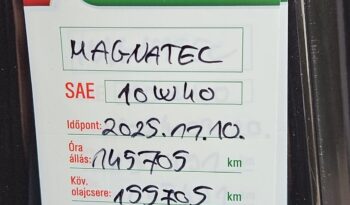 MAGNATEC
SAE 10W40
Időpont: 2025.11.10.
Óra állás: 145705 km
Köv. olajcsere: 155705 km